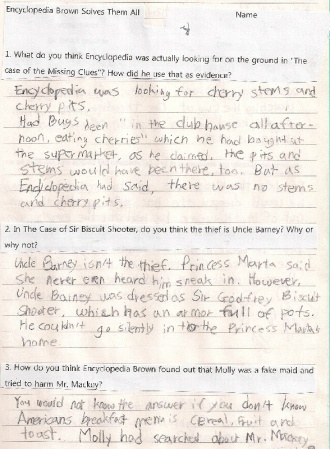 Encyclopedia Brown Solves Them All
Name
1. What do you think Encyclopedia was actually looking for on the ground in "The
case of the Missing Clues"? How did he use that as evidence?
Encyclopedia was looking for cherry stems and
cherry pits.
Had Bugs been "in the clubhouse all after-
noon, eating cherries" which he had bought at
the supermarket, as he claimed, the pits and
stems would have been there, too. But as
Encyclopedia had said, there was no stems
and cherry pits.
2. In The Case of Sir Biscuit Shooter, do you think the thief is Uncle Barney? Why or
why not?
Uncle Barney isn't the thief. Princess Marta said
she never even heard him sneak in. However,
Uncle Barney was dressed as Sir Goodfrey Biscuit
Shooter, which has an armor full of pots.
He couldn't go silently in to the Princess Marta's
home
3. How do you think Encyclopedia Brown found out that Molly was a fake maid and
tried to harm Mr. Mackey?
You would not know the answer if you don't know
Americans breakfast menu is cereal, fruit and
toast. Molly had searched about Mr. Mackey